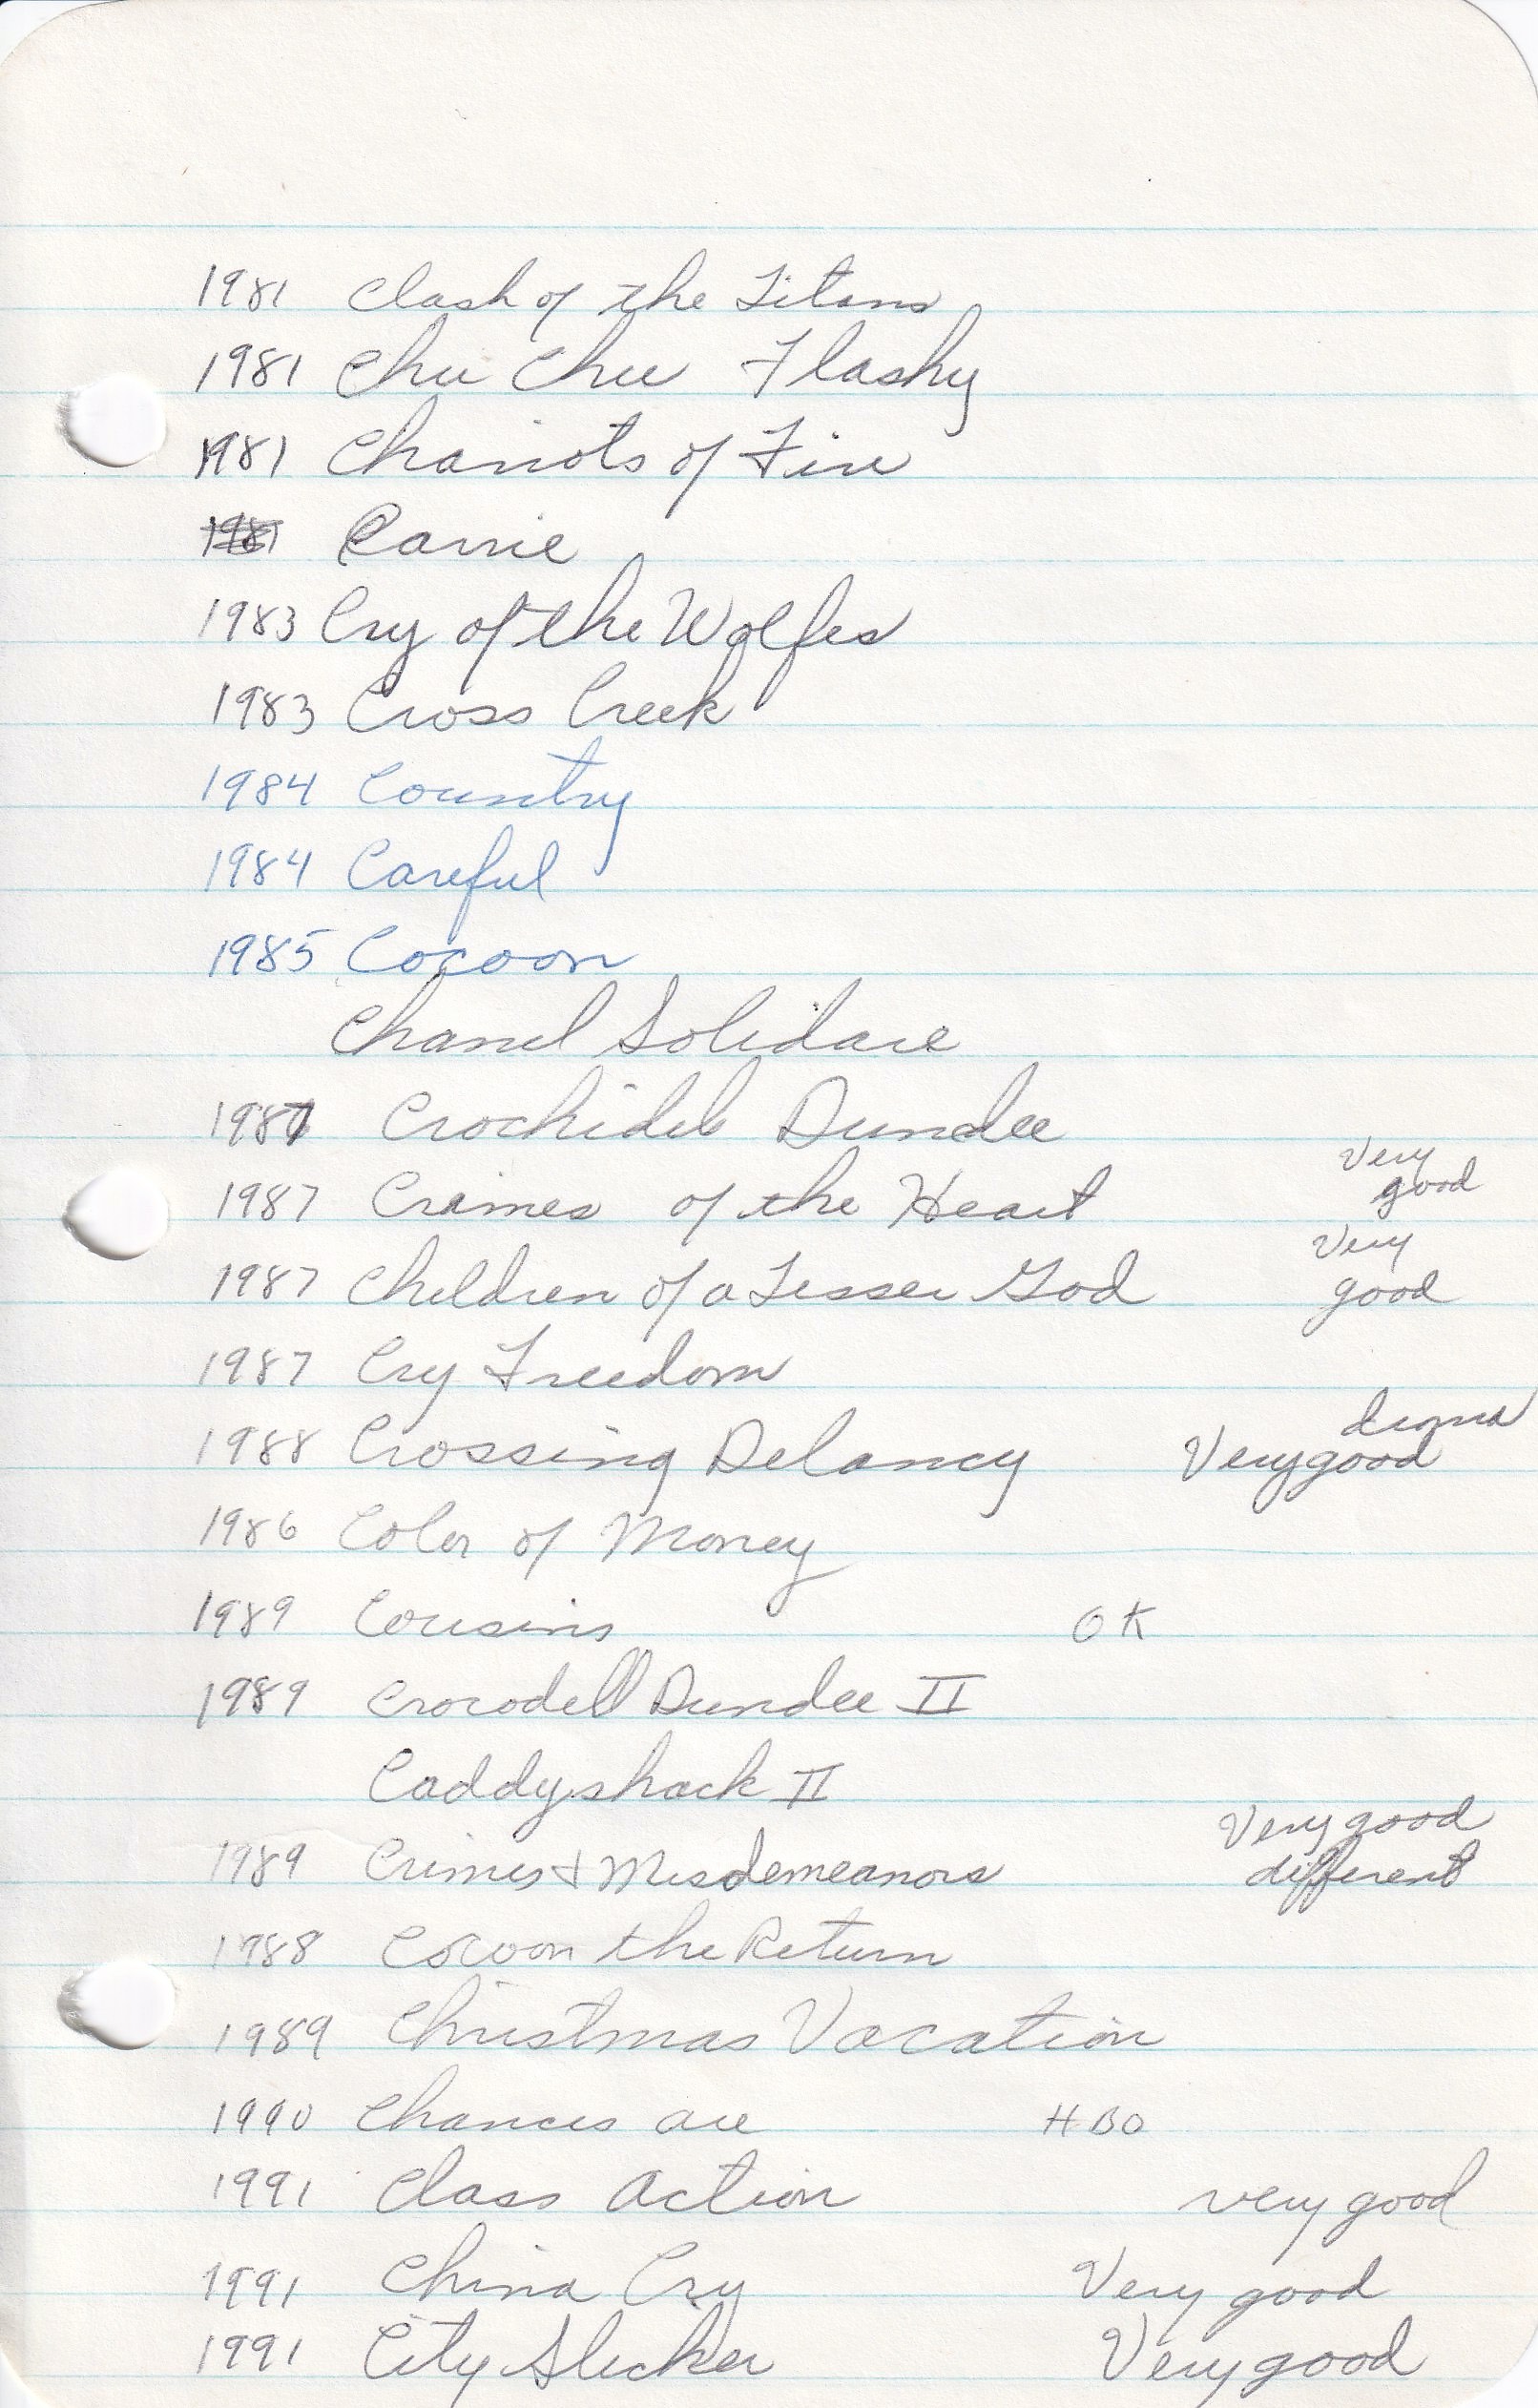 1981 Clash of the Titans
1981 Chu Chu Flashy
1981 Chariots of Fire
1981 Carrie
1983 Cry of the Wolfes
1983 Cross Creek
1984 Country
1984 Careful
1985 Cocoon
Chanel Solidare
1987 Crochidile Dundee
1987 Crimes of the Heart Very good
1987 Children of a Lesser God Very good
1987 Cry Freedom
1988 Crossing Delancy Very good drama
1986 Color of Money
1989 Cousins OK
1989 Crocodell Dundee II
Caddyshack II
1989 Crimes + Misdemeanors Very good different
1988 Cocoon the Return
1989 Christmas Vacation
1990 Chances are HBO
1991 Class Action very good
1991 China Cry Very good
1991 City Slicker Very good